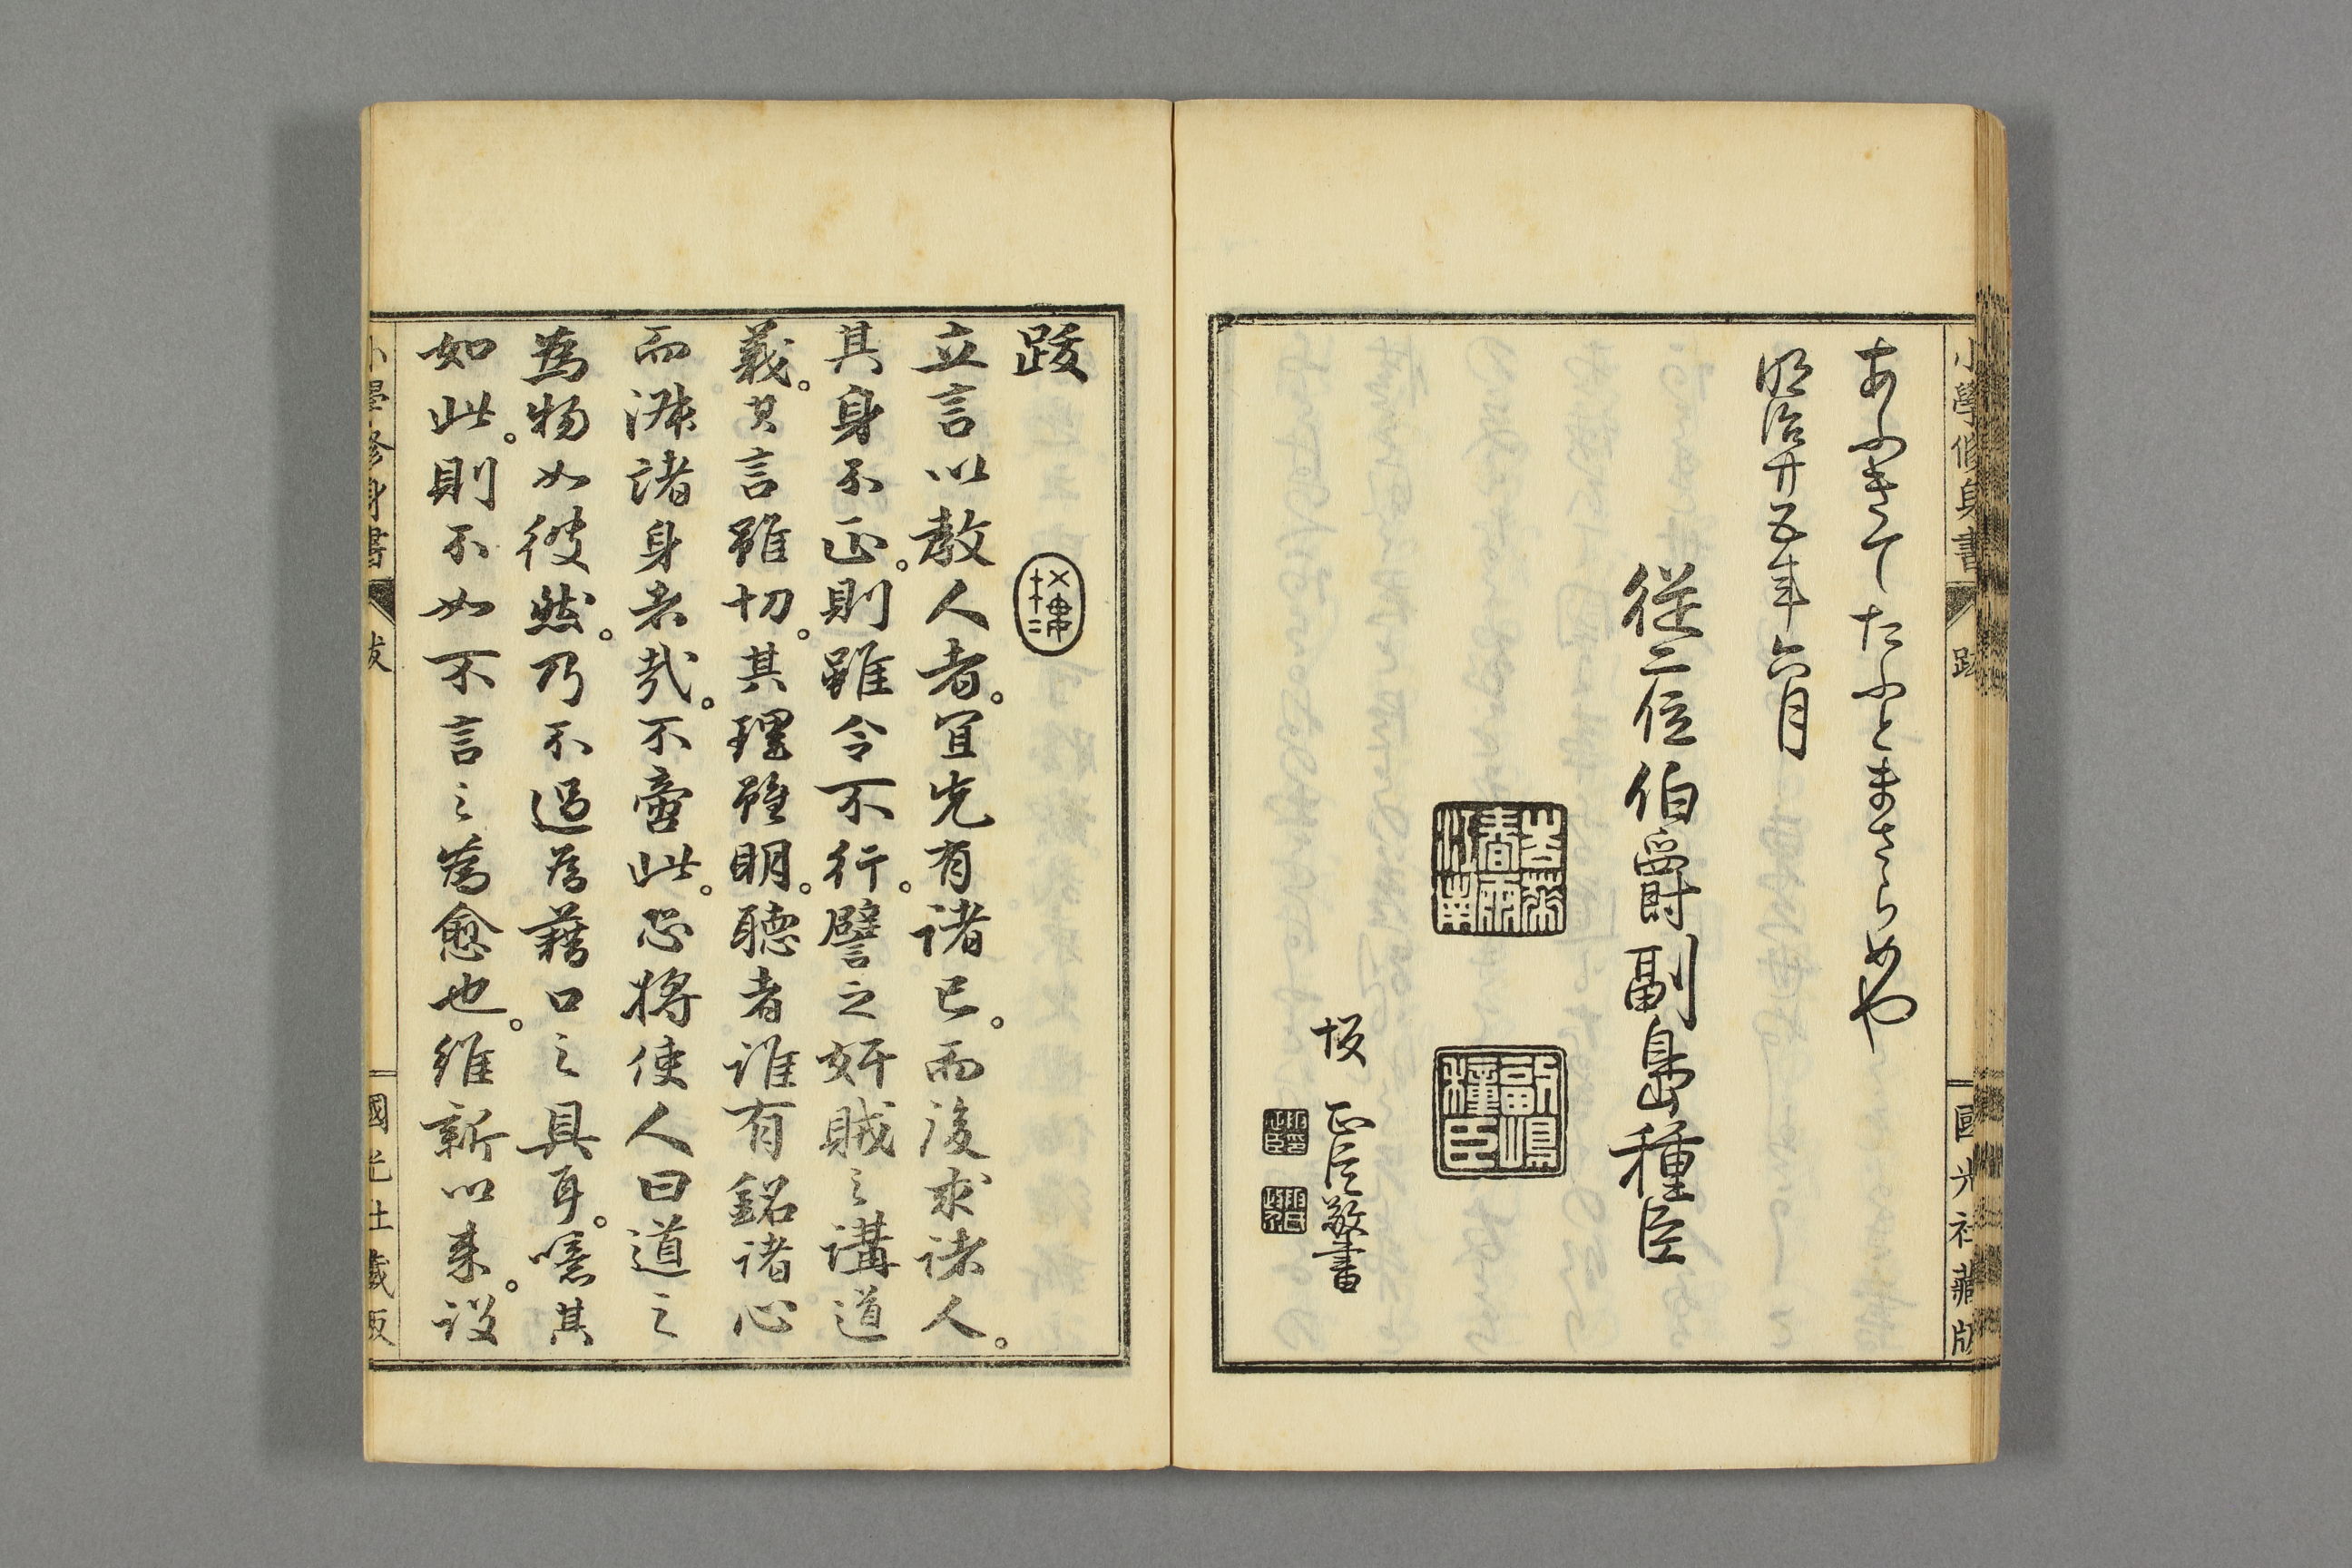 小學修身書
跋
國光社藏版
あふきてたふとまさらめや
明治廿五年六月
從二位伯爵副島種臣
副嶋種臣
坂正臣敬書
跋
立言以敎人者。宜先有諸己。而後求諸人。
其身不正。則雖令不行。譬之奸賊之講道
義。其言雖切。其理雖明。聽者誰有銘諸心
而淑諸身者哉。不啻此。恐將使人曰道之
為物如彼然。乃不過為藉口之具耳。噫其
如此。則不如不言之為愈也。維新以来。設
小學修身書
跋
國光社藏版